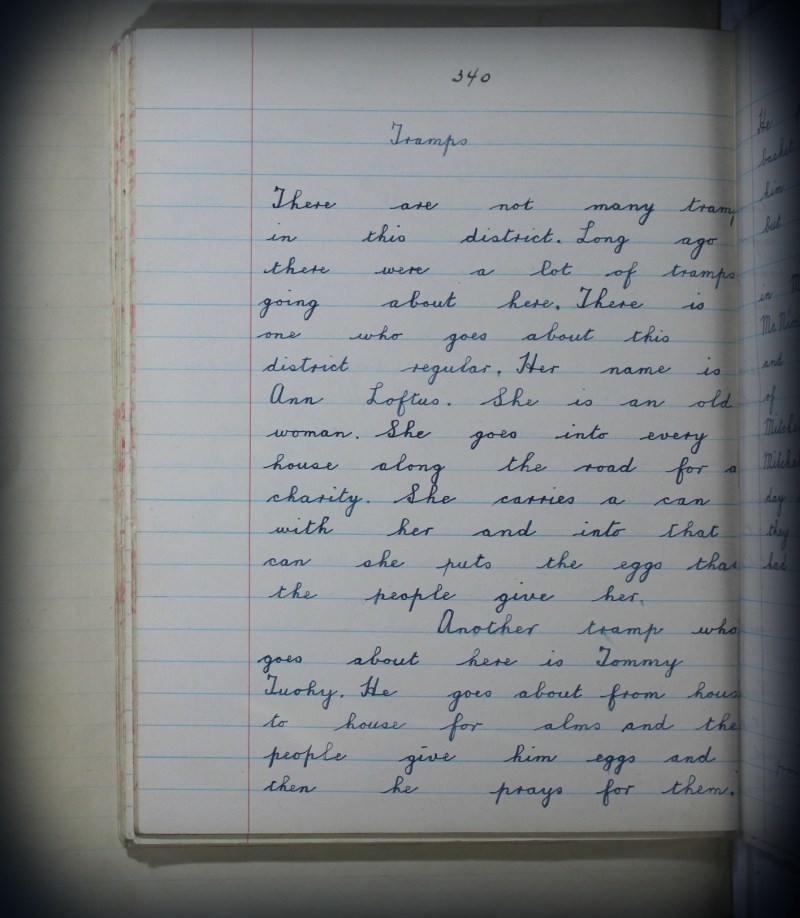 340
Tramps
There are not many tramp
in this district. Long ago
there were a lot of tramps
going about here. There is
one who goes about this
district regular. Her name is
Ann Loftus. She is an old
woman. She goes into every
house along the road for a
charity. She carries a can
with her and into that
can she puts the eggs that
the people give her.
Another tramp who
goes about here is Tommy
Tuohy. He goes about from hous
to house for alms and the
people give him eggs and
then he prays for them.
He
basket
him
but
in
and
of
day
they
had